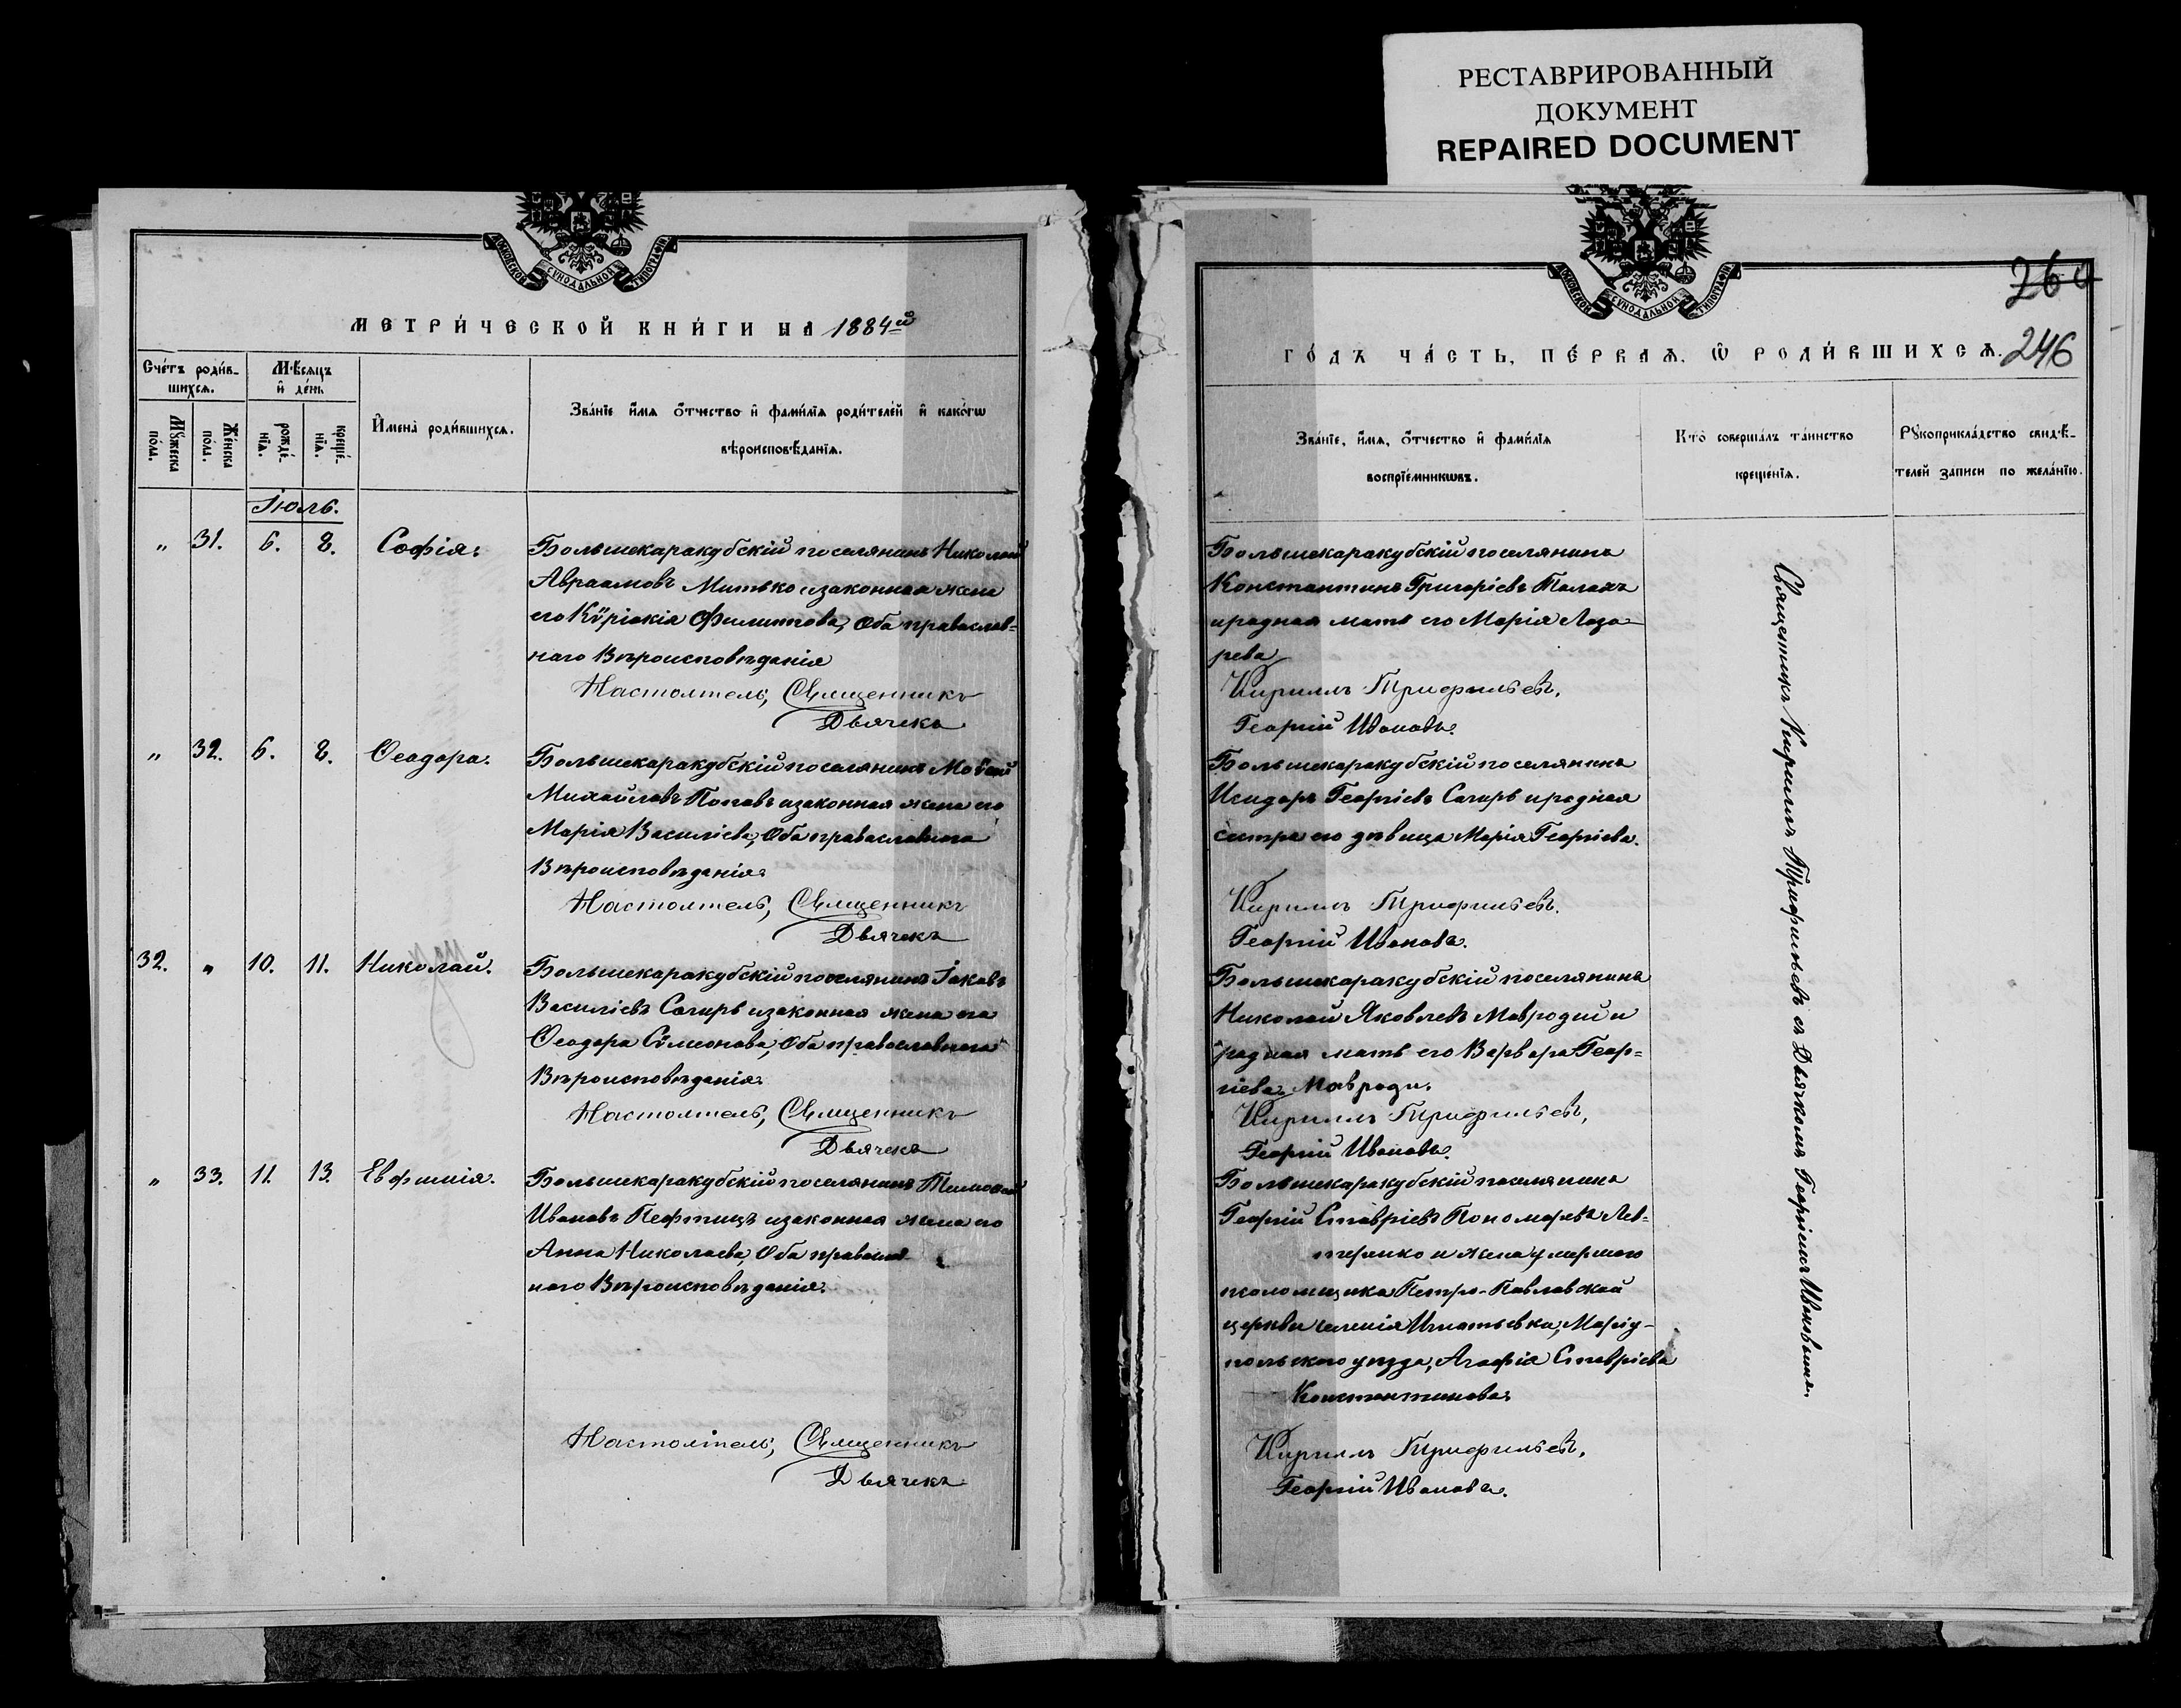 РЕСТАВРИРОВАННЫЙ
ДОКУМЕНТ
REPAIRED DOCUMENT
МОСКОВСКОЙ СУНОДАЛЬНОЙ ТИПОГРАФІИ
МЕТРИ́ЧЕСКОЙ КНИ́ГИ НА 1884й
Сче́тъ роди́в-
шихся.
Мѣсяцъ
и де́нь
Мꙋжеска
по́ла.
Же́нска
по́ла.
рожде́-
нїя.
креще́-
нїя.
Имена̀ роди́вшихся.
Зва́нїе имя о́тчество и фами́лїя роди́телей и како́гѡ
вѣроисповѣ́данїя.
Іюль.
„ 31. 6. 8. Софія.
Большекаракубскій поселянинъ Николай
Авраамовъ Митько и законная жена
его Кѵріакія Филиппова, Оба православ=
наго Вѣроисповѣданія
Настоятель, Священникъ
Дьячекъ
„ 32. 6. 8. Ѳеодора.
Большекаракубскій поселянинъ Моѵсей
Михайловъ Поповъ и законная жена его
Марія Василіева, Оба православнаго
Вѣроисповѣданія.
Настоятель, Священникъ
Дьячекъ
32. „ 10. 11. Николай.
Большекаракубскій поселянинъ Іаковъ
Василіевъ Сагиръ и законная жена его
Ѳеодора Сѵмеонова, Оба православнаго
Вѣроисповѣданія.
Настоятель, Священникъ
Дьячекъ
„ 33. 11. 13. Евфимія.
Большекаракубскій поселянинъ Тимоѳей
Ивановъ Пефтицъ и законная жена его
Анна Николаева, Оба православ
наго Вѣроисповѣданія.
Настоятель, Священникъ
Дьячекъ
МОСКОВСКОЙ СУНОДАЛЬНОЙ ТИПОГРАФІИ
260
ГО́ДЪ ЧА́СТЬ, ПЕ́РВАЯ. Ѡ РОДИ́ВШИХСЯ. 246
Зва́нїе, имя, о́тчество и фами́лїя
воспрїе́мникѡвъ.
Кто̀ соверша́лъ та́инство
креще́нїя.
Рꙋкоприкла́дство свидѣ́-
телей записи по жела́нїю.
Большекаракубскій поселянинъ
Константинъ Григоріевъ Палахъ
и родная мать его Марія Лаза-
рева
Кирилъ Трифильевъ,
Георгій Ивановъ.
Большекаракубскій поселянинъ
Исидоръ Георгіевъ Сагиръ и родная
сестра его дѣвица Марія Георгіева.
Кирилъ Трифильевъ.
Георгій Ивановъ.
Большекаракубскій поселянинъ
Николай Яковлевъ Мавродій и
родная мать его Варвара Геор=
гіева Мавроди.
Кирилъ Трифильевъ,
Георгій Ивановъ.
Большекаракубскій поселянинъ
Георгій Ставріевъ Пономаревъ Лев-
теренко и жена умершаго
псаломщика Петро-Павловской
церкви селенія Игнатьевки, Маріу-
польскаго уѣзда, Агафія Ставріева
Константинова.
Кирилъ Трифильевъ,
Георгій Ивановъ.
Священникъ Кириллъ Трифильевъ съ Дьячкомъ Георгіемъ Ивановымъ.